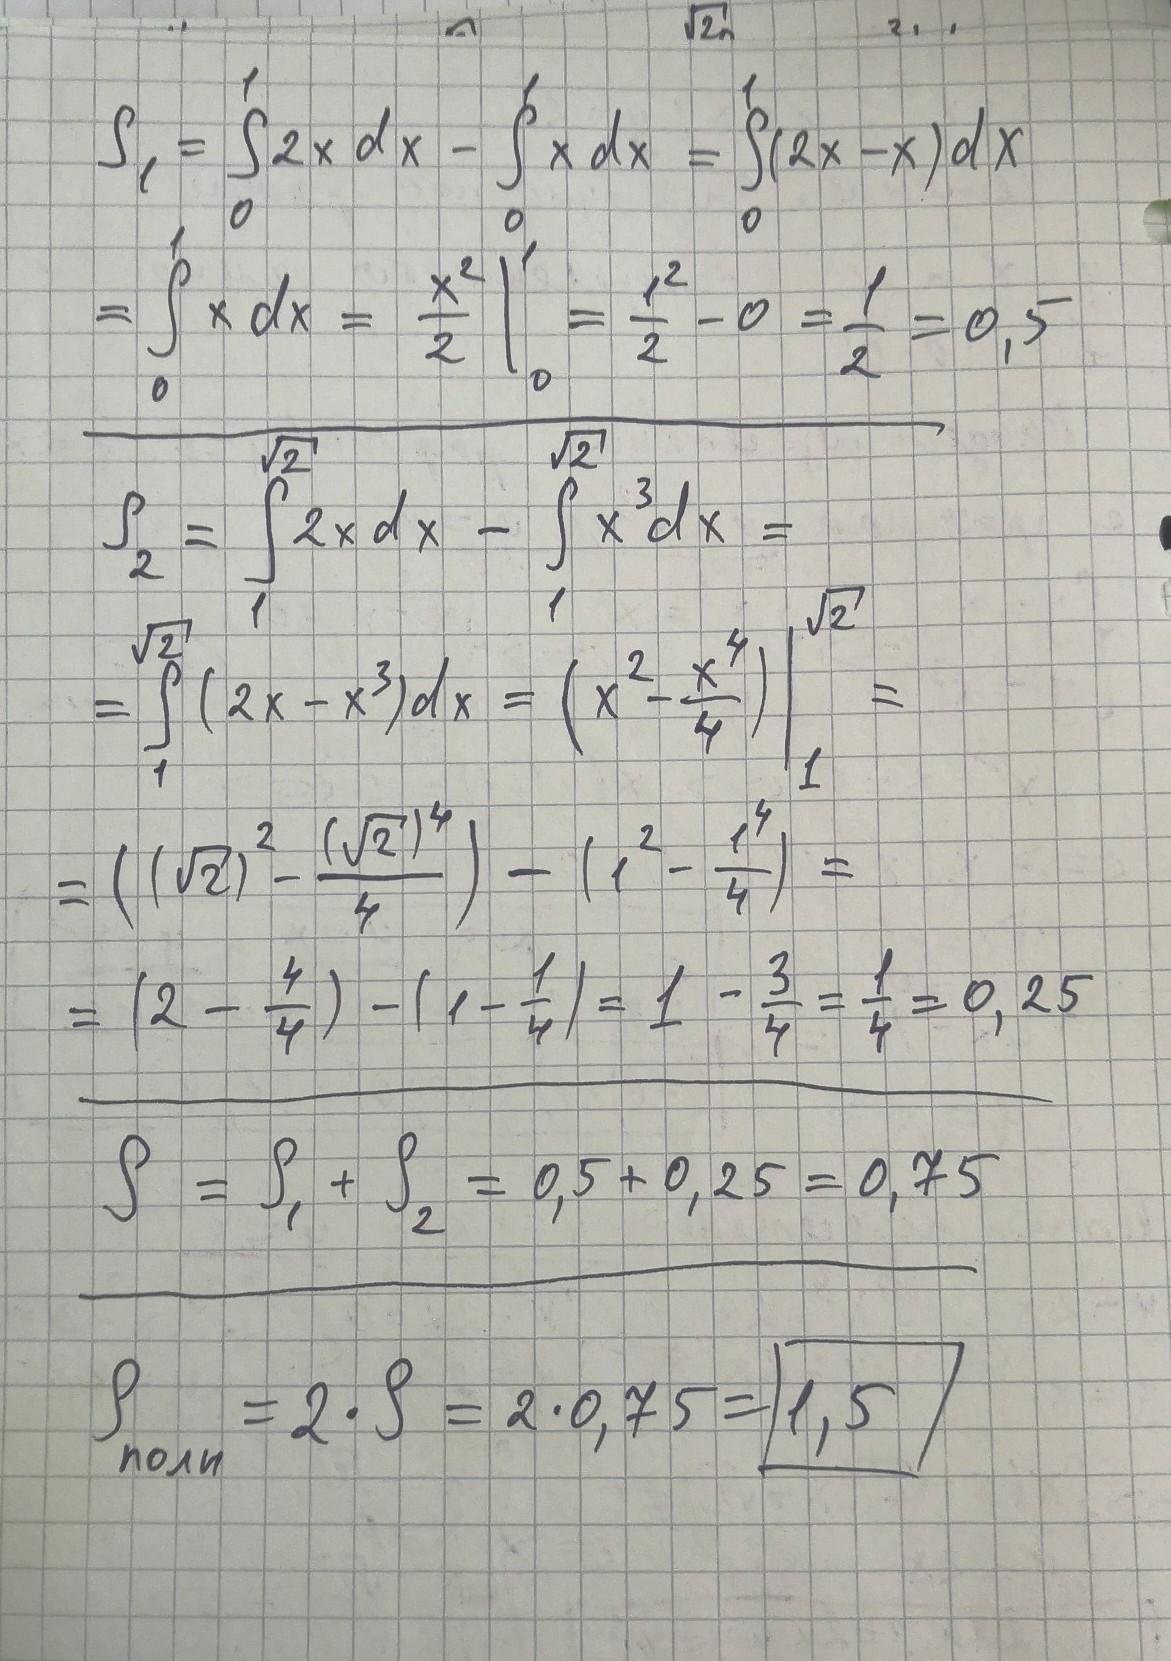 √2
S₁ = ∫₀¹ 2x dx − ∫₀¹ x dx = ∫₀¹ (2x − x) dx
= ∫₀¹ x dx = x²/2 |₀¹ = 1²/2 − 0 = 1/2 = 0,5
S₂ = ∫₁^√2 2x dx − ∫₁^√2 x³ dx =
= ∫₁^√2 (2x − x³) dx = (x² − x⁴/4) |₁^√2 =
= ((√2)² − (√2)⁴/4) − (1² − 1⁴/4) =
= (2 − 4/4) − (1 − 1/4) = 1 − 3/4 = 1/4 = 0,25
S = S₁ + S₂ = 0,5 + 0,25 = 0,75
S полн = 2 · S = 2 · 0,75 = 1,5